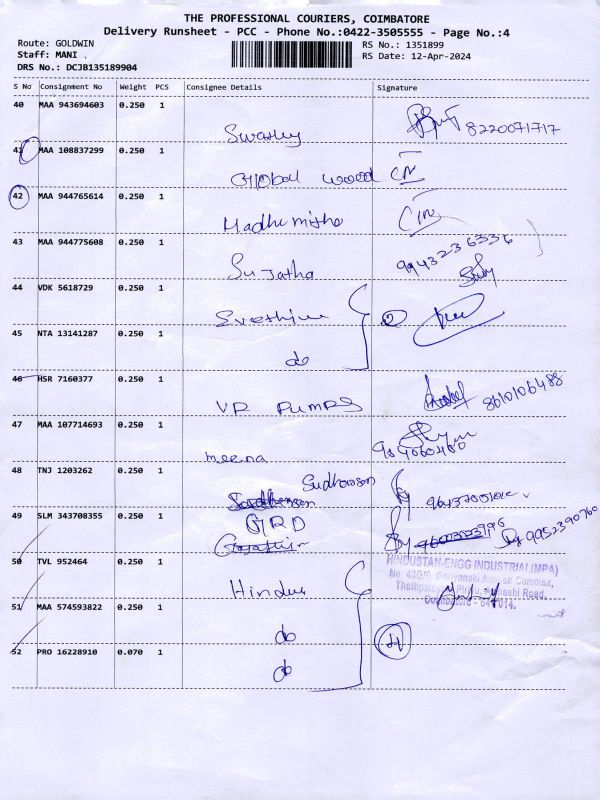 THE PROFESSIONAL COURIERS, COIMBATORE
Delivery Runsheet - PCC - Phone No.:0422-3505555 - Page No.:4
Route: GOLDWIN
Staff: MANI .
DRS No.: DCJB135189904
RS No.: 1351899
RS Date: 12-Apr-2024
S No Consignment No Weight PCS Consignee Details Signature
40 MAA 943694603 0.250 1
8220071717
41 MAA 108837299 0.250 1
Global wood
42 MAA 944765614 0.250 1
Madhumitha
43 MAA 944775608 0.250 1
Sujatha 9943236336
44 VDK 5618729 0.250 1
2
45 NTA 13141287 0.250 1
do
46 HSR 7160377 0.250 1
VP PUMPS 8610106488
47 MAA 107714693 0.250 1
meena
48 TNJ 1203262 0.250 1
Sudharson
49 SLM 343708355 0.250 1
GRD 9952390760
50 TVL 952464 0.250 1
HINDUSTAN-ENGG INDUSTRIAL(MPA)
Hindus
51 MAA 574593822 0.250 1
Coimbatore - 641 014.
do
52 PRO 16228910 0.070 1
do